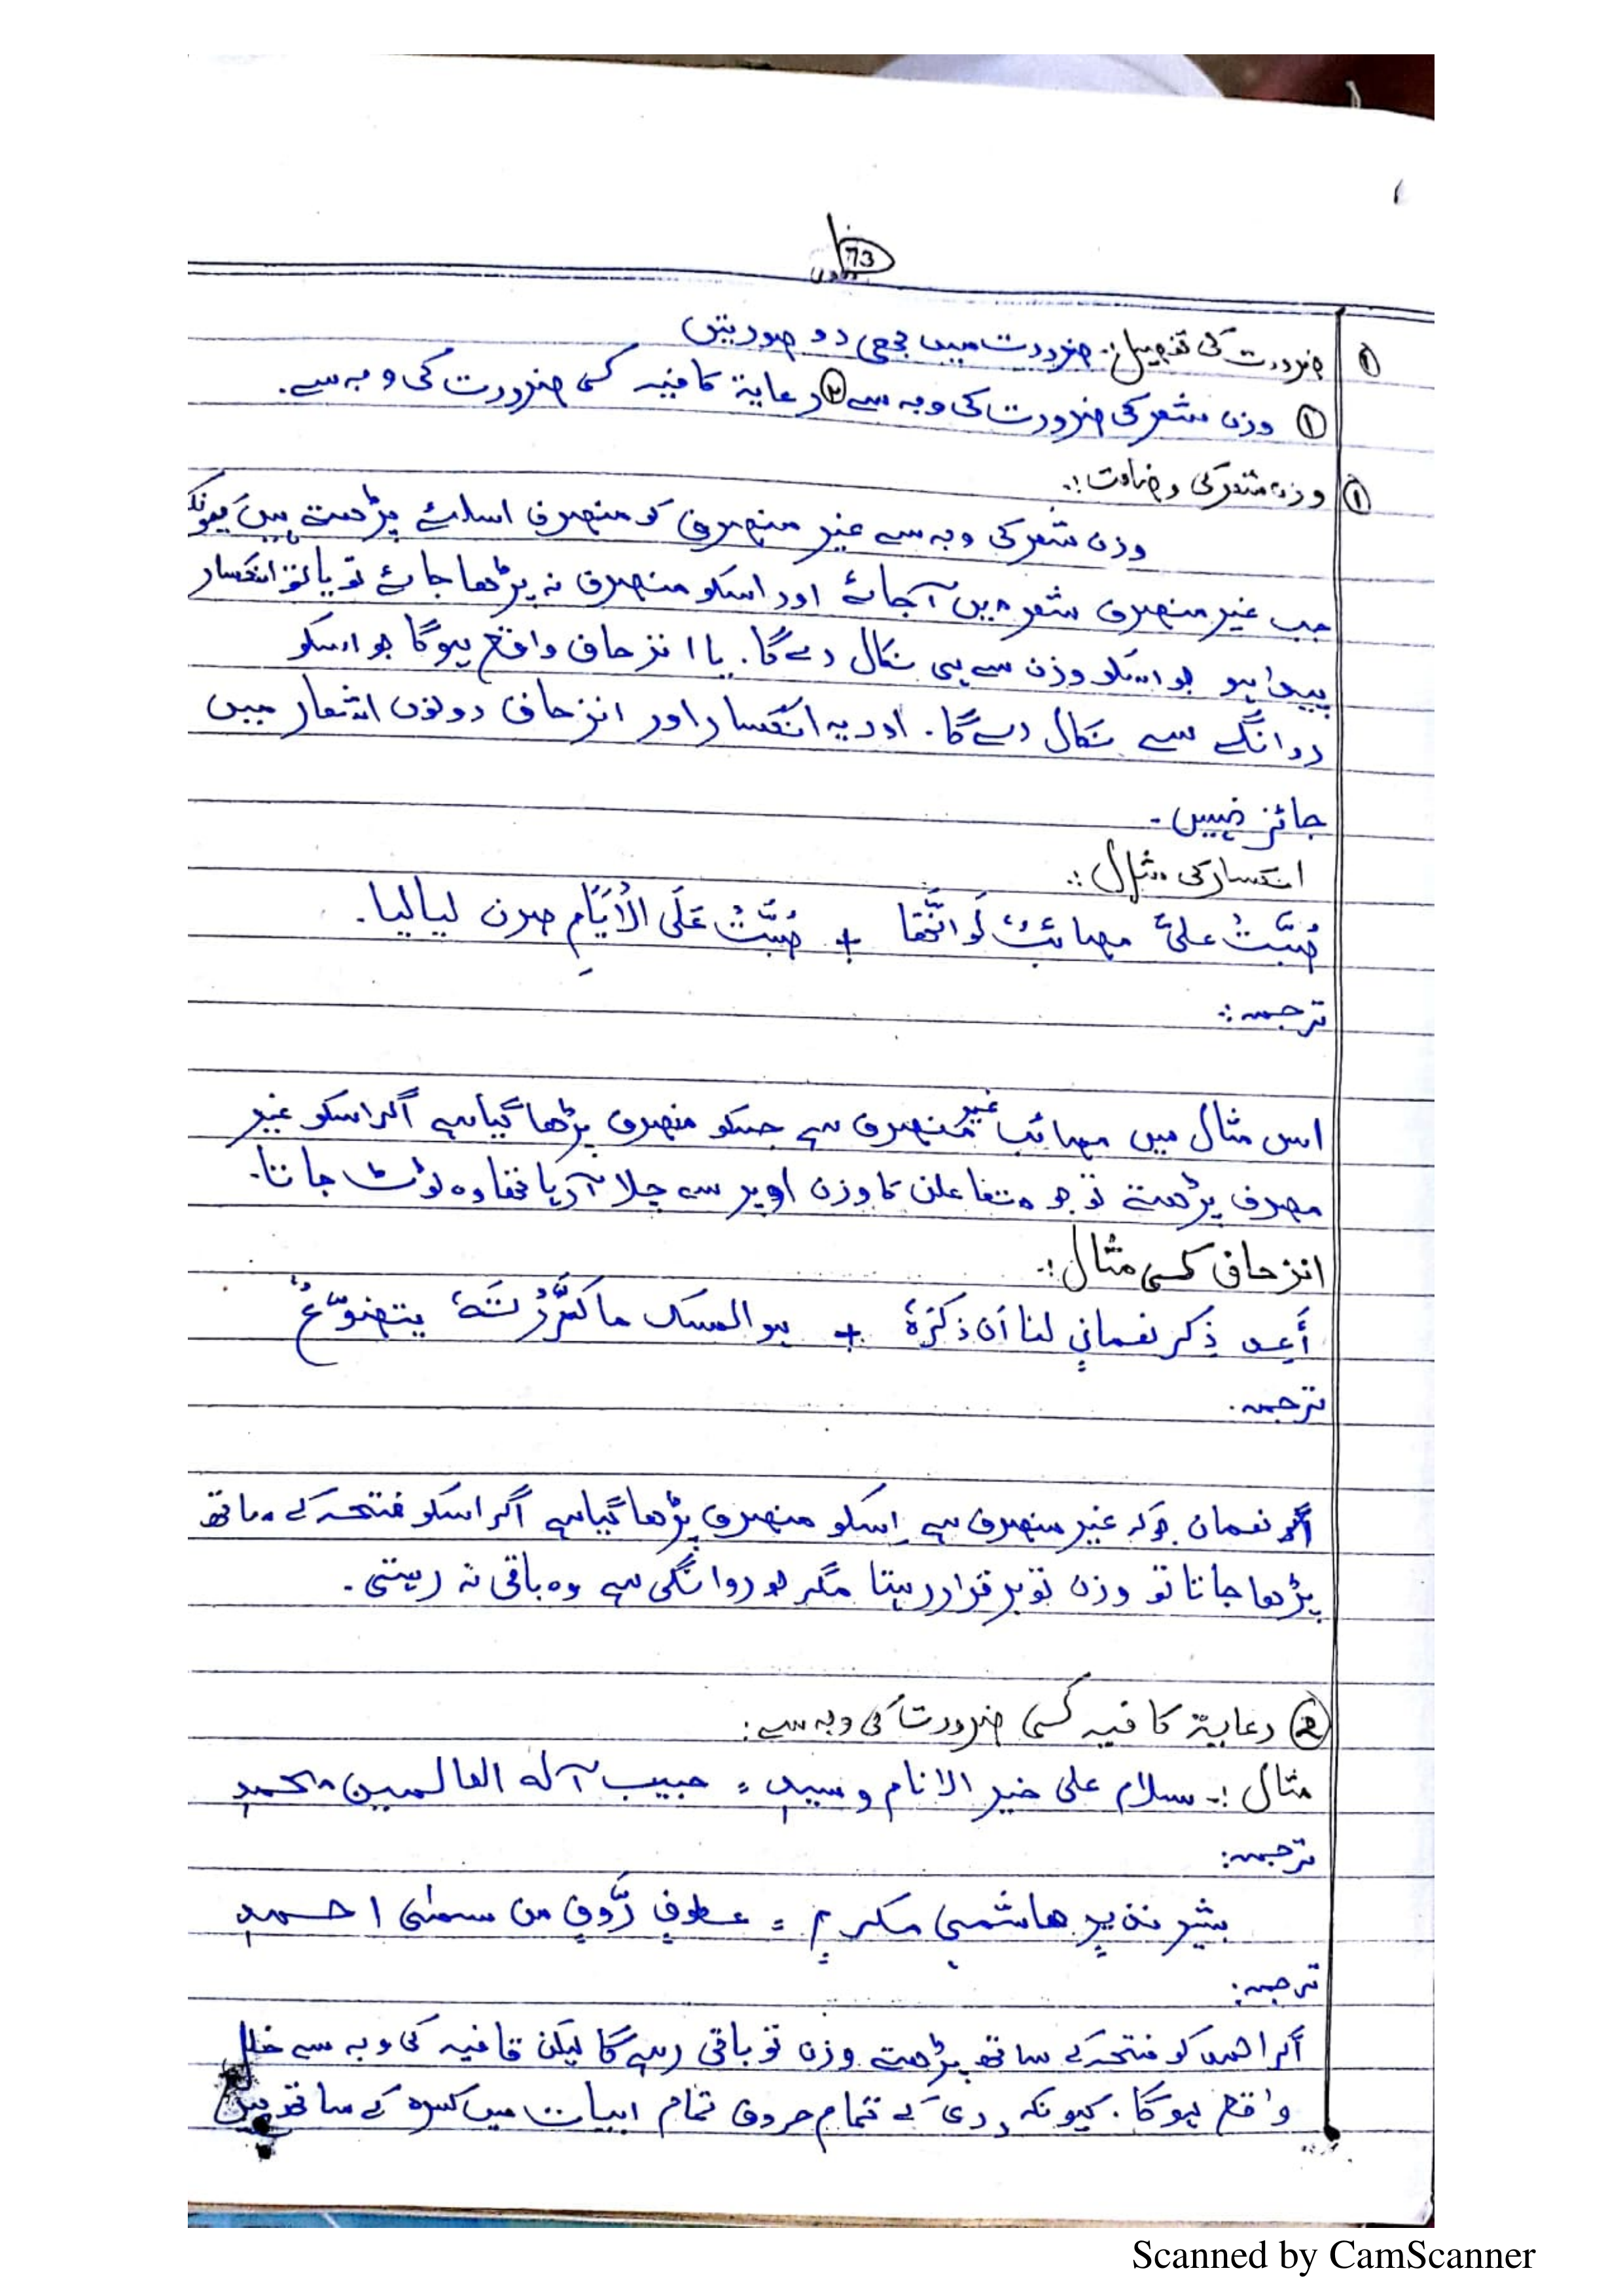 73
① ضرورت کی تفصیل:۔ ضرورت میں بھی دو صورتیں
① وزن شعر کی ضرورت کی وجہ سے ② رعایۃ کافیہ کسی ضرورت کی وجہ سے۔
① وزن شعر کی وضاحت:۔
وزن شعر کی وجہ سے غیر منصرف کو منصرف اسلئے پڑھتے ہیں کیونکہ
جب غیر منصرف شعر میں آجائے اور اسکو منصرف نہ پڑھا جائے تو یا تو انکسار
پیدا ہو جو اسکو وزن سے ہی نکال دے گا۔ یا انزحاف واقع ہوگا جو اسکو
روانگے سے نکال دے گا۔ اور یہ انکسار اور انزحاف دونوں اشعار میں
جائز نہیں۔
انکسار کی مثال:۔
صُبَّتْ علیَّ مصائبٌ لَو انَّھَا + صُبَّتْ عَلَی الْاَیَّامِ صرن لیالیا۔
ترجمہ:۔
اس مثال میں مصائب غیر منصرف ہے جسکو منصرف پڑھا گیا ہے اگر اسکو غیر
مصرف پڑھتے تو جو متفاعلن کا وزن اوپر سے چلا آرہا تھا وہ ٹوٹ جاتا۔
انزحاف کسی مثال:۔
أَعِد ذِکر نعمانٍ لنا اَن ذِکرَہٗ + ہو المسک ما کَرَّرْتَہٗ یتضوّعُ
ترجمہ۔
نعمان جو کہ غیر منصرف ہے اسکو منصرف پڑھا گیا ہے اگر اسکو فتحہ کے ساتھ
پڑھا جاتا تو وزن تو برقرار رہتا مگر جو روانگی ہے وہ باقی نہ رہتی۔
② رعایۃ کافیہ کسی ضرورت کی وجہ سے:
مثال:۔ سلام علی خیر الانام و سیدٍ = حبیب آلہ العالمین محمدٍ
ترجمہ:
بشیر نذیرٍ ھاشمیٍ مکرمٍ = عطوفٍ رَّؤفٍ من سمٰی احمدٍ
ترجمہ:
اگر احمد کو فتحہ کے ساتھ پڑھتے وزن تو باقی رہے گا لیکن قافیہ کی وجہ سے خلل
واقع ہوگا۔ کیونکہ روی کے تمام حروف تمام ابیات میں کسرہ کے ساتھ ہیں
Scanned by CamScanner